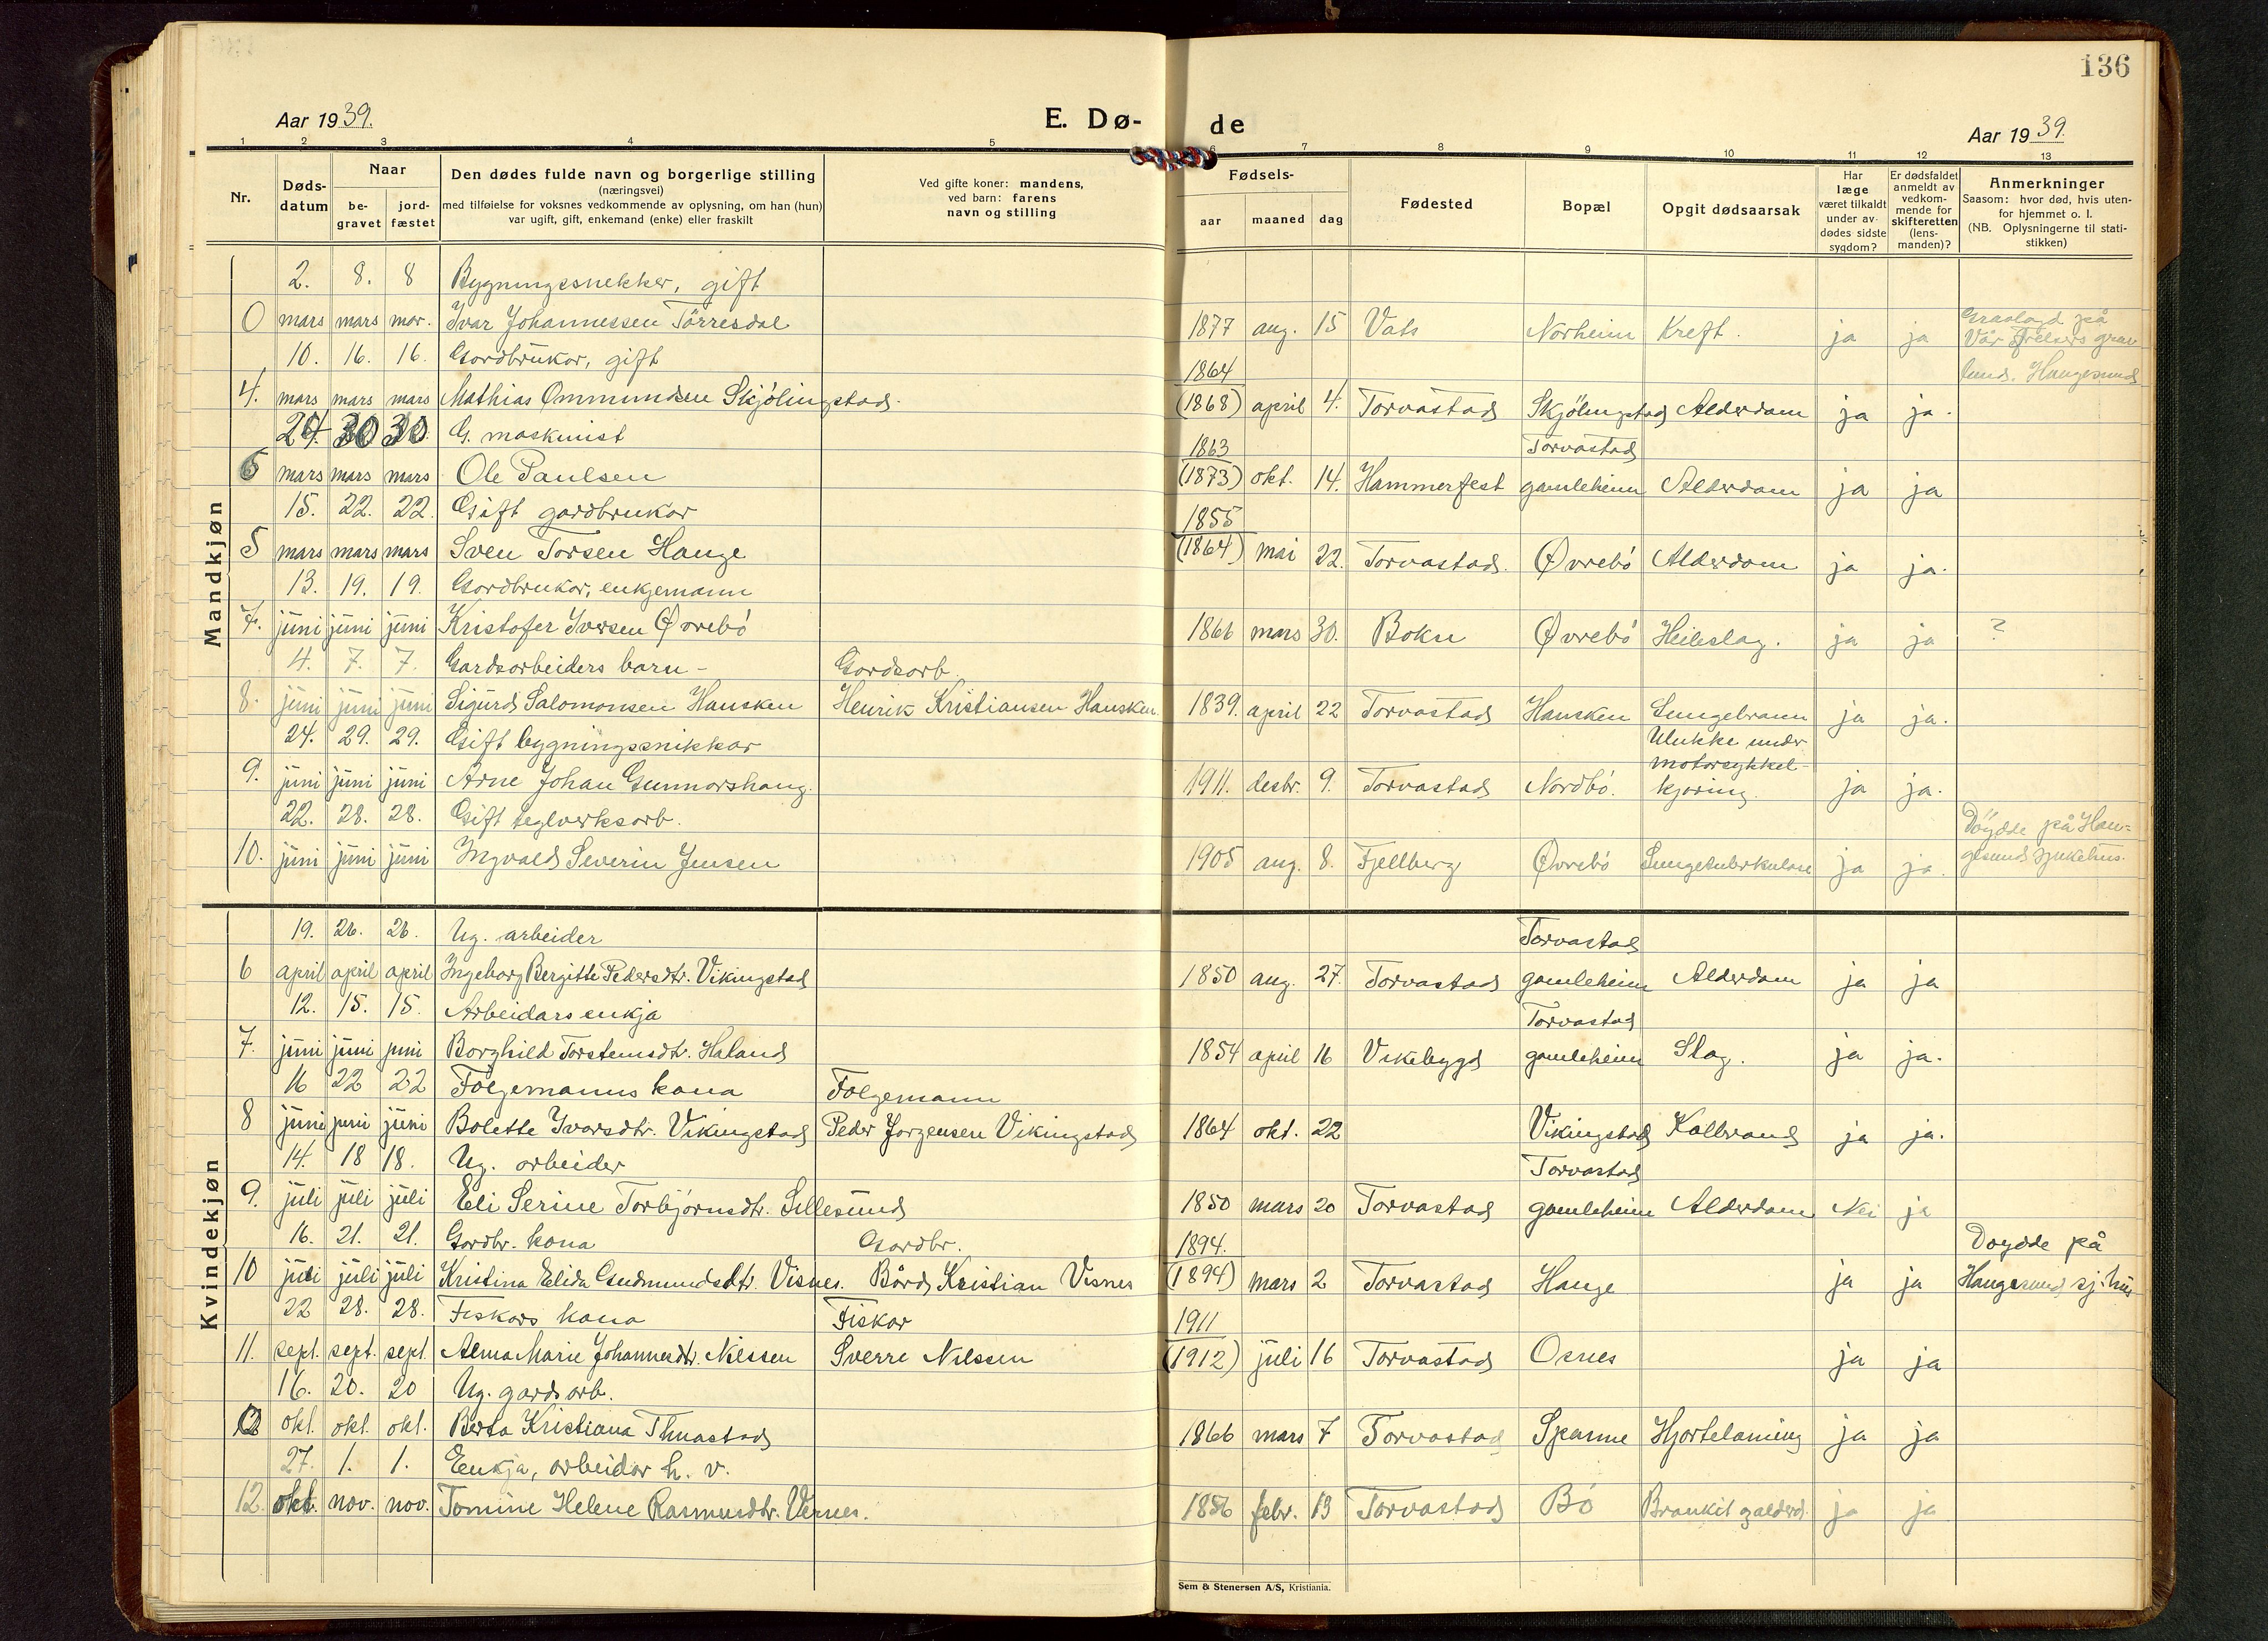 136
Aar 1939.
E. Dø-
de
Aar 1939.
1 2 3 4 5 6 7 8 9 10 11 12 13
Nr.
Døds-
datum
Naar
be-
gravet
jord-
fæstet
Den dødes fulde navn og borgerlige stilling
(næringsvei)
med tilføielse for voksnes vedkommende av oplysning, om han (hun)
var ugift, gift, enkemand (enke) eller fraskilt
Ved gifte koner: mandens,
ved barn: farens
navn og stilling
Fødsels-
aar maaned dag
Fødested
Bopæl
Opgit dødsaarsak
Har
læge
været tilkaldt
under av-
dødes sidste
sygdom?
Er dødsfaldet
anmeldt av
vedkom-
mende for
skifteretten
(lens-
manden)?
Anmerkninger
Saasom: hvor død, hvis uten-
for hjemmet o. l.
(NB. Oplysningerne til stati-
stikken)
Mandkjøn
2. 8. 8 Bygningssnekker, gift
0 mars mars mar. Ivar Johannessen Törresdal 1877 aug. 15 Vats Norheim Kreft. ja ja
Gravlagd på
Vår Frelsers grav
lund. Haugesund
10. 16. 16. Gardbrukar, gift 1864
4. mars mars mars Mathias Ommundsen Skjölingstad. (1868) april 4. Torvastad Skjölingstad Alderdom ja ja.
24. 30 30 G. maskinist 1863 Torvastad
6 mars mars mars Ole Paulsen (1873) okt. 14. Hammerfest gamleheim Alderdom ja ja
15. 22. 22. Gift gardbrukar 1855
5 mars mars mars Sven Torsen Hauge (1864) mai 22. Torvastad. Øvrebö Alderdom ja ja.
13. 19. 19. Gardbrukar, enkjemann
7. juni juni juni Kristofer Iversen Øvrebö 1866 mars 30. Bokn Øvrebö Heileslag. ja ja ?
4. 7. 7. Gardsarbeiders barn - Gardsorb.
8. juni juni juni Sigurd Salomonsen Hausken Henrik Kristiansen Hausken 1839. april 22 Torvastad Hausken Lungebrann ja ja.
24. 29. 29. Gift bygningssnikkar Ulukke under
motorsykkel-
9. juni juni juni Arne Johan Gunnarshaug. 1911. desbr. 9. Torvastad Nordbö. kjöring. ja ja.
22. 28. 28. Gift teglverksarb.
10. juni juni juni Ingvald Severin Jensen 1905 aug. 8. Fjellberg Øvrebö Lungetuberkulose ja ja.
Döydde på Hau=
gesund sjukehus.
Kvindekjøn
19. 26. 26. Ug. arbeider Torvastad
6 april april april Ingeborg Bergitte Pedersdtr. Vikingstad 1850 aug. 27. Torvastad gamleheim Alderdom ja ja
12. 15. 15. Arbeidars enkja Torvastad
7. juni juni juni Borghild Torsteinsdtr. Håland 1854 april 16 Vikebygd gamleheim Slag. ja ja.
16 22 22 Folgemanns kona Folgemann
8 juni juni juni Bolette Ivarsdtr. Vikingstad Peder Jorgensen Vikingstad 1864 okt. 22 Vikingstad Kolbrand ja ja.
14. 18 18. Ug. arbeider Torvastad
9. juli juli juli Eli Serine Torbjörnsdtr. Sillesund 1850 mars 20 Torvastad gamleheim Alderdom Nei ja
16. 21. 21. Gardbr. kona Gardbr. 1894.
10 juli juli juli Kristina Elida Gudmundsdtr. Visnes. Bård Kristian Visnes (1894) mars 2 Torvastad Hauge ja ja
Doydde på
Haugesund sj.hus
22 28. 28. Fiskars kona Fiskar 1911
11. sept. sept. sept. Alma Marie Johannesdtr. Nilssen Sverre Nilssen (1912) juli 16 Torvastad Osnes ja ja
16. 20. 20 Ug. gardsarb.
okt. okt. okt. Berta Kristiana Thuastad 1866 mars 7 Torvastad Spanne Hjertelaming ja ja
27. 1. 1. Enkja, arbeidar h. v.
12. okt. nov. nov. Tomine Helene Rasmusdtr. Visnes. 1856 febr. 13 Torvastad Bö Bronkit galderd. ja ja
Sem & Stenersen A/S, Kristiania.